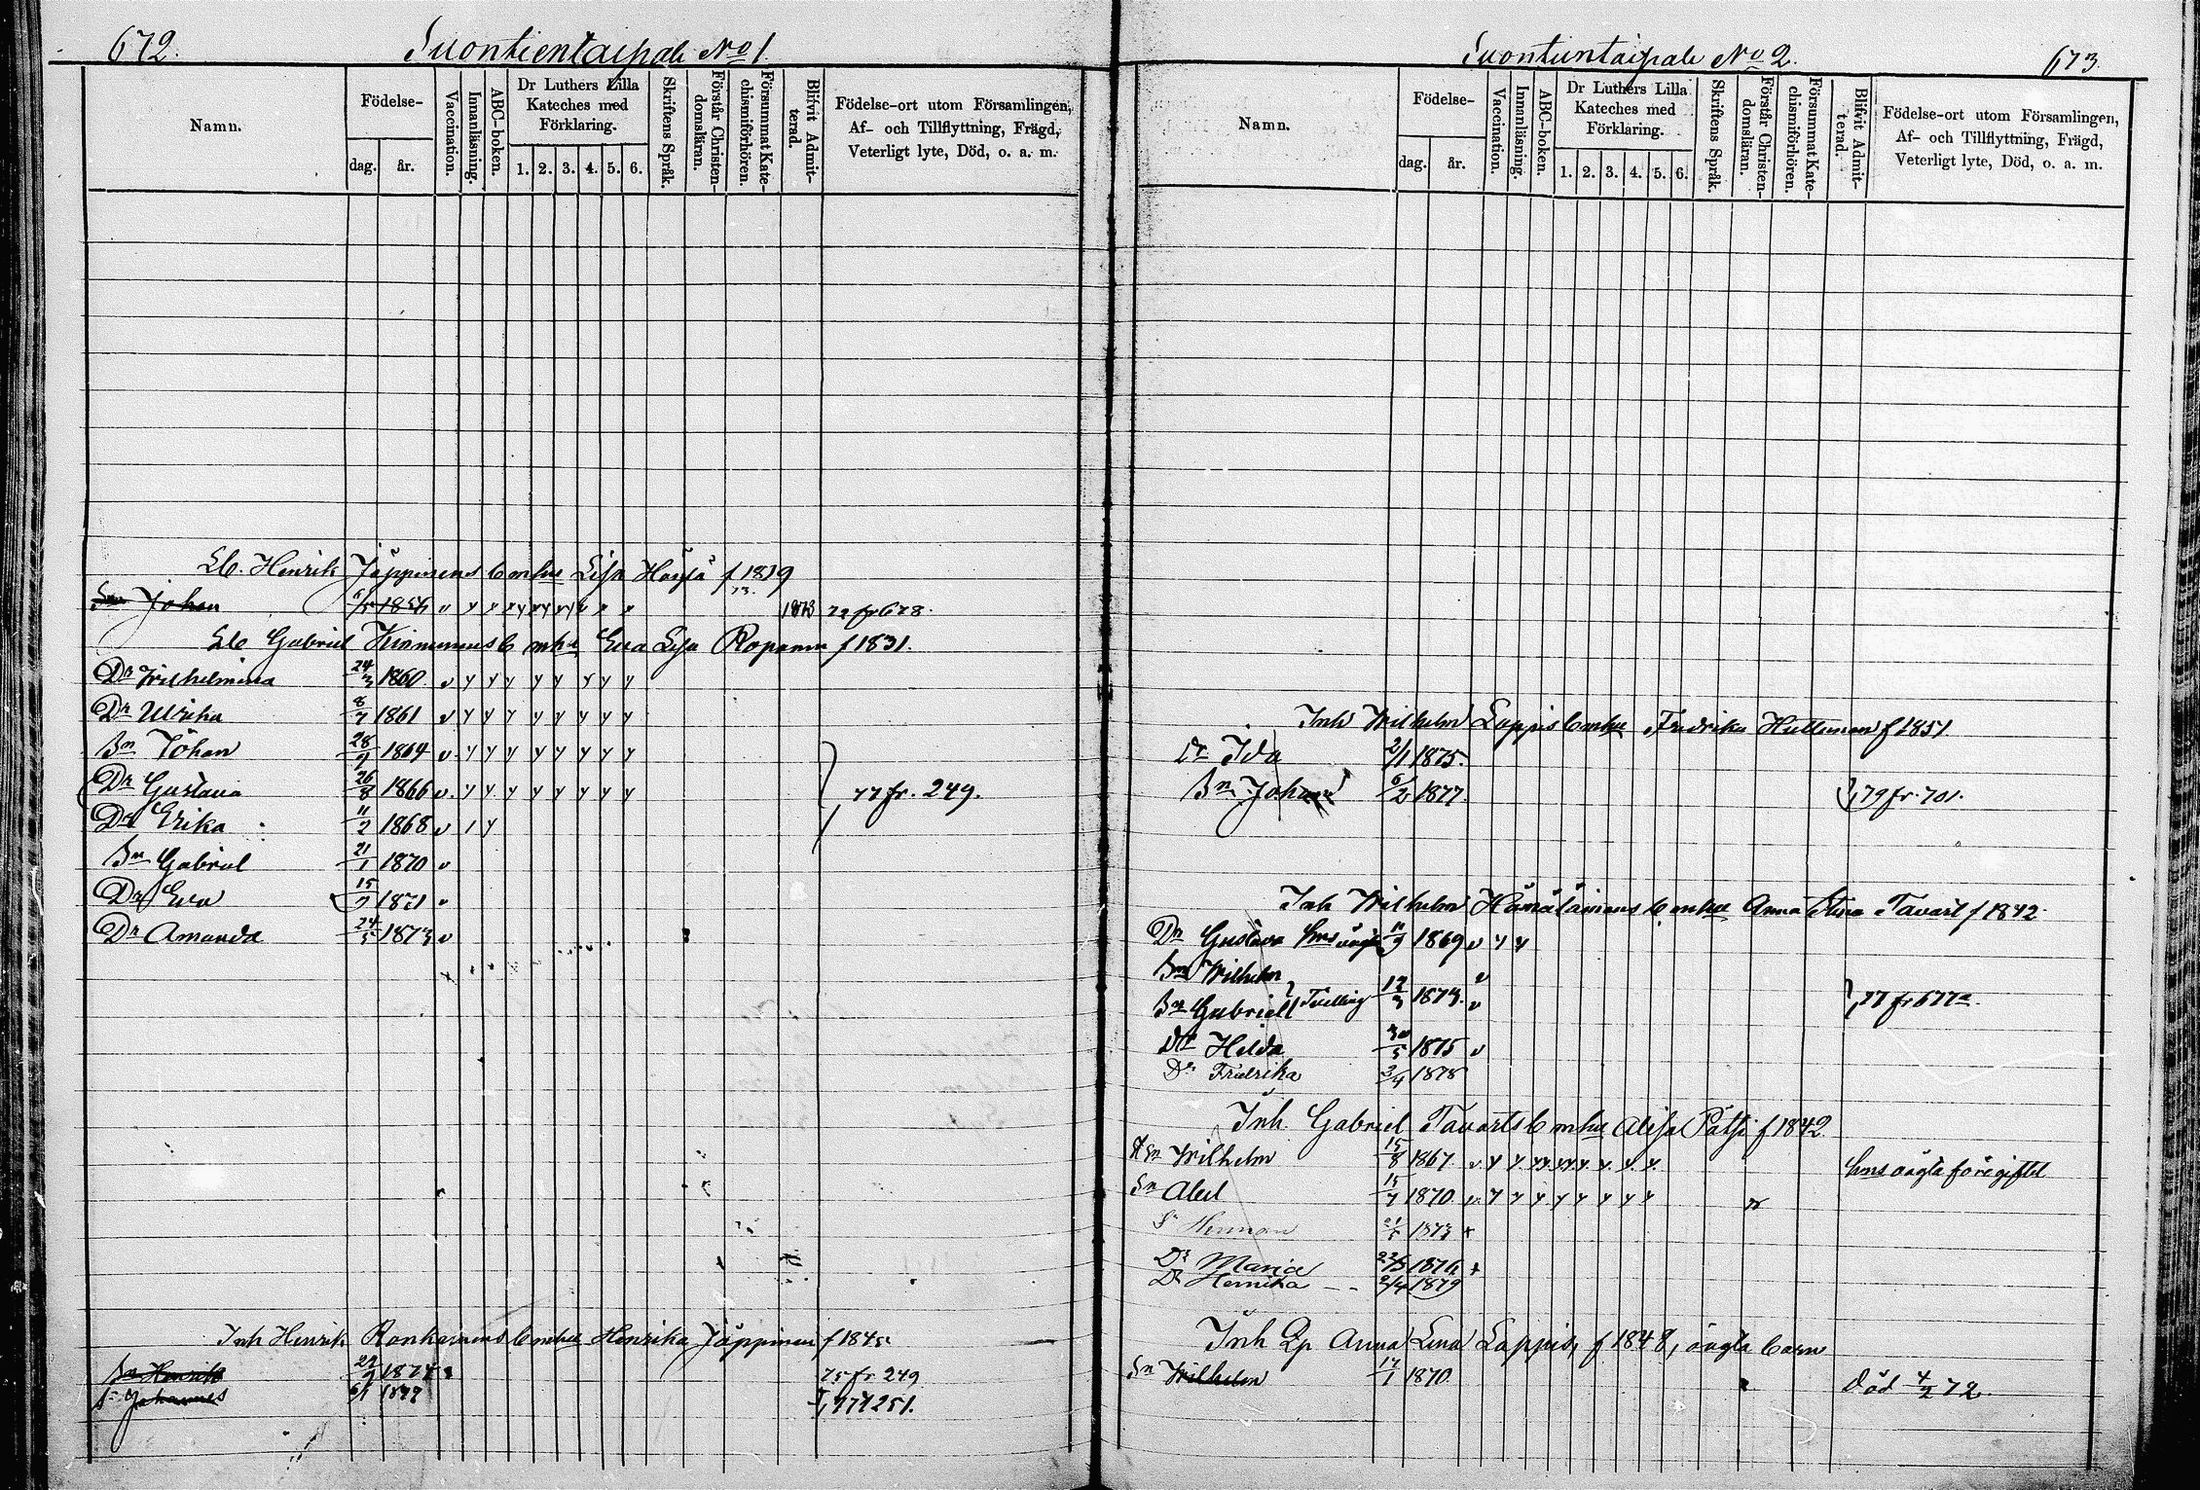 672. Suontientaipale No 1.
Namn.
Födelse-
dag. år.
Vaccination.
Innanläsning.
ABC-boken.
Dr Luthers Lilla Kateches med Förklaring.
1. 2. 3. 4. 5. 6.
Skriftens Språk.
Förstår Christendomsläran.
Försummat Katechismiförhören.
Blifvit Admitterad.
Födelse-ort utom Församlingen, Af- och Tillflyttning, Frägd, Veterligt lyte, Död, o. a. m.
Henrik Jäppinens b m hu Lisa f 1819
Sn Johan 1873 72 fr 678.
Gabriel Kinnunens b m hu Eva Lisa Roponen f 1831.
Dr Wilhelmina 24/3 1860 v y y y y y y y y
Dr Ulrika 8/7 1861 v y y y y y y y y
Sn Johan 1864 v y y y y y y y y
Dr Gustava 26/8 1866 v y y y y y y y y 77 fr. 249.
Dr Erika 11/2 1868 v
Sn Gabriel 21/1 1870 v
Dr Eva 15/7 1871 v
Dr Amanda 24/5 1873 v
Inh Henrik Ronkainens b m hu Henrika Jäppinen f 1845
Sn Henrik 1874 75 fr 249
Sn Johannes 6/1 1877 251.
Suontientaipale No 2. 673.
Namn.
Födelse-
dag. år.
Vaccination.
Innanläsning.
ABC-boken.
Dr Luthers Lilla Kateches med Förklaring.
1. 2. 3. 4. 5. 6.
Skriftens Språk.
Förstår Christendomsläran.
Försummat Katechismiförhören.
Blifvit Admitterad.
Födelse-ort utom Församlingen, Af- och Tillflyttning, Frägd, Veterligt lyte, Död, o. a. m.
Inh Wilhelm Lappis b m hu Fredrika Huttunen f 1851
Dr Ida 2/1 1875.
Sn Johan 6/2 1877. 79 fr 701.
Inh Wilhelm Hämäläinens b m hu Anna Stina Tavast f 1842
Dr Gustava 11/9 1869 v y y
Sn Wilhelm v
Sn Gabriel Tvilling 12/3 1873. v 77 fr 677
Dr Hilda 30/5 1875 v
Dr Fredrika 3/4 1878
Inh. Gabriel Tavasts b m hu f 1842
Sn Wilhelm 15/8 1867 hms oägta före giftet
Sn Abel 15/7 1870
Sn Herman 1873
Dr Maria 1876
Dr Henrika 2/4 1879
Inh Anna Lena Lappis, f 1848, oägta barn
Sn Wilhelm 17/1 1870. död 4/2 72.